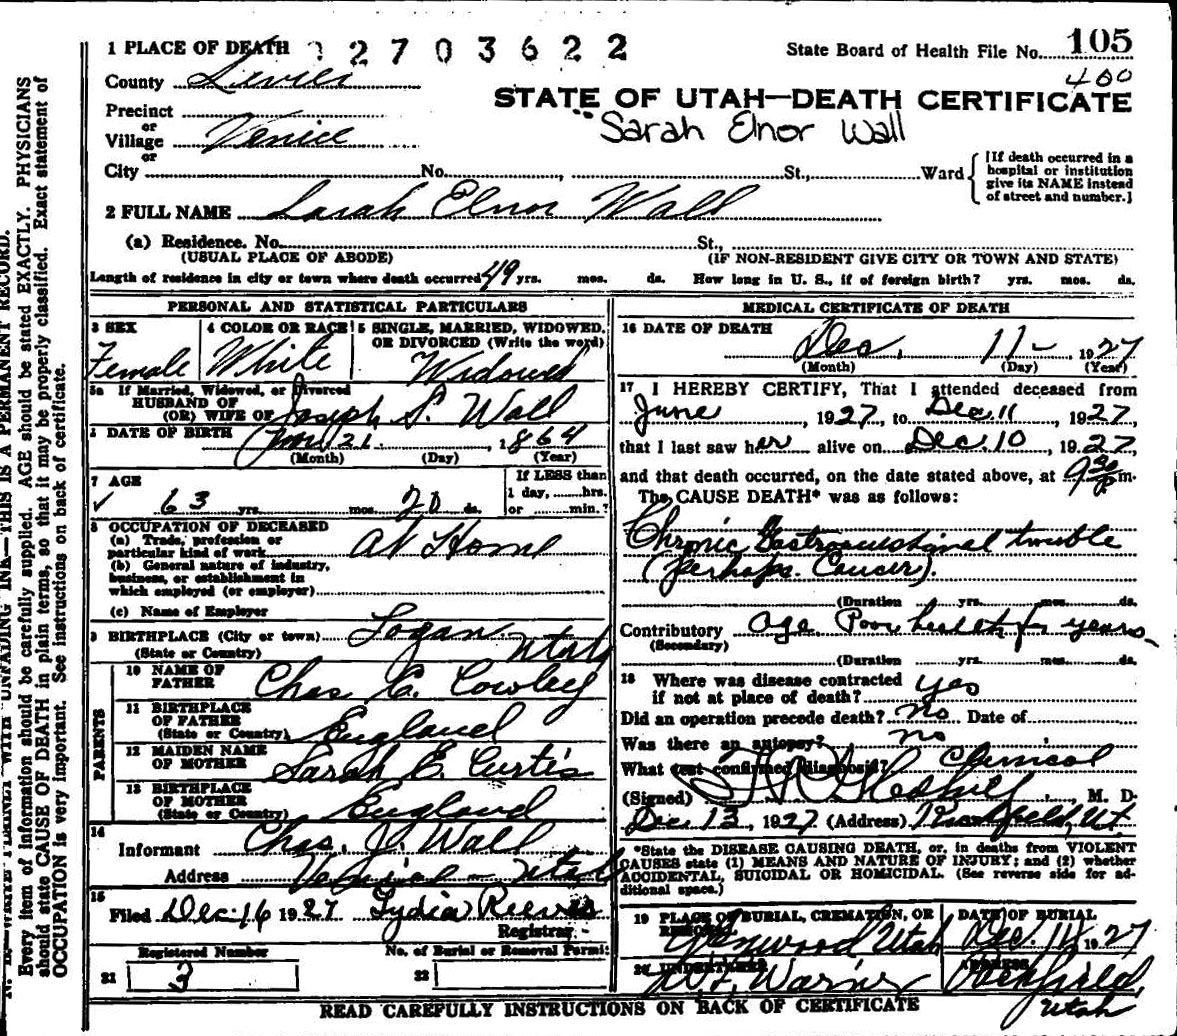 1 PLACE OF DEATH 2703622
State Board of Health File No. 105
County Sevier 400
STATE OF UTAH—DEATH CERTIFICATE
Precinct
or
Village Venice
Sarah Elnor Wall
or
City No. , St., Ward
[If death occurred in a
hospital or institution
give its NAME instead
of street and number.]
2 FULL NAME Sarah Elnor Wall
(a) Residence. No. St.,
(USUAL PLACE OF ABODE) (IF NON-RESIDENT GIVE CITY OR TOWN AND STATE)
Length of residence in city or town where death occurred 49 yrs. mos. ds. How long in U. S., if of foreign birth? yrs. mos. ds.
PERSONAL AND STATISTICAL PARTICULARS
3 SEX
Female
4 COLOR OR RACE
White
5 SINGLE, MARRIED, WIDOWED,
OR DIVORCED (Write the word)
Widowed
5a If Married, Widowed, or Divorced
HUSBAND OF
(OR) WIFE OF Joseph S. Wall
DATE OF BIRTH 21 1864
(Month) (Day) (Year)
7 AGE
63 yrs. mos. 20 ds.
If LESS than
1 day, hrs.
or min.?
8 OCCUPATION OF DECEASED
(a) Trade, profession or
particular kind of work At Home
(b) General nature of industry,
business, or establishment in
which employed (or employer)
(c) Name of Employer
9 BIRTHPLACE (City or town) Logan
(State or Country) Utah
PARENTS
10 NAME OF
FATHER Chas C. Cowley
11 BIRTHPLACE
OF FATHER
(State or Country) England
12 MAIDEN NAME
OF MOTHER Sarah E. Curtis
13 BIRTHPLACE
OF MOTHER
(State or Country) England
14
Informant Chas. J. Wall
Address Utah
15
Filed Dec. 16 1927 Lydia Reeves
Registrar.
Registered Number No. of Burial or Removal Permit
21 3 22
MEDICAL CERTIFICATE OF DEATH
16 DATE OF DEATH
Dec. 11 1927
(Month) (Day) (Year)
17 I HEREBY CERTIFY, That I attended deceased from
June , 1927, to Dec. 11 , 1927,
that I last saw her alive on Dec. 10 , 1927,
and that death occurred, on the date stated above, at 9 30 P m.
The CAUSE DEATH* was as follows:
Chronic Gastrointestinal trouble
(perhaps Cancer).
(Duration yrs. mos. ds.
Contributory Age. Poor health for years
(Secondary)
(Duration yrs. mos. ds.
18 Where was disease contracted
if not at place of death? yes
Did an operation precede death? No Date of
Was there an autopsy? no
What test confirmed diagnosis? Clinical
(Signed) , M. D.
Dec 13, 1927 (Address) Richfield, Ut.
*State the DISEASE CAUSING DEATH, or, in deaths from VIOLENT
CAUSES state (1) MEANS AND NATURE OF INJURY; and (2) whether
ACCIDENTAL, SUICIDAL OR HOMICIDAL. (See reverse side for ad-
ditional space.)
19 PLACE OF BURIAL, CREMATION, OR
REMOVAL
Glenwood Utah
DATE OF BURIAL
Dec. 1927
20 UNDERTAKER
Warner
ADDRESS
Richfield,
Utah
READ CAREFULLY INSTRUCTIONS ON BACK OF CERTIFICATE
N. B.—WRITE PLAINLY WITH UNFADING INK—THIS IS A PERMANENT RECORD.
Every item of information should be carefully supplied. AGE should be stated EXACTLY. PHYSICIANS
should state CAUSE OF DEATH in plain terms, so that it may be properly classified. Exact statement of
OCCUPATION is very important. See instructions on back of certificate.